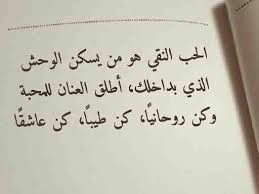 الحب النقي هو من يسكن الوحش
الذي بداخلك، أطلق العنان للمحبة
وكن روحانيًا، كن طيبًا، كن عاشقًا